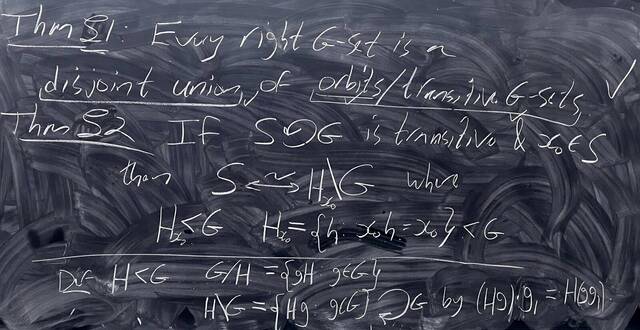 Thm §1: Every right G-set is a
disjoint union of orbits/transitive G-sets ✓
Thm §2 If S↻G is transitive & x₀∈S
then S ↔ H_{x₀}\G where
H_{x₀}<G H_{x₀}={h: x₀h=x₀}<G
Def H<G G/H={gH g∈G}
H\G={Hg g∈G}↻G by (Hg)·g₁=H(gg₁)